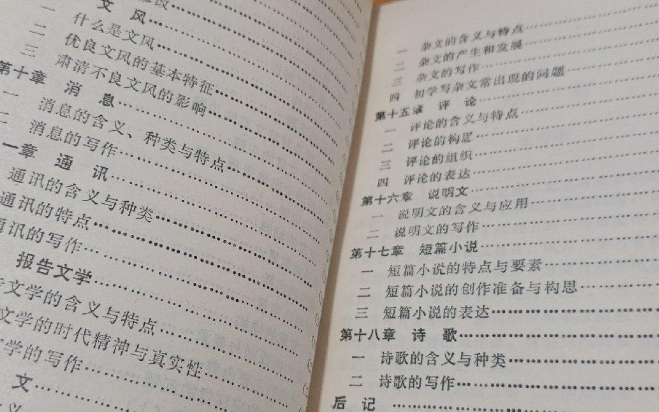 文 风
一 什么是文风
二 优良文风的基本特征
三 肃清不良文风的影响
第十章 消 息
一 消息的含义、种类与特点
二 消息的写作
一章 通 讯
通讯的含义与种类
通讯的特点
通讯的写作
报告文学
文学的含义与特点
文学的时代精神与真实性
学的写作
文
一 杂文的含义与特点
二 杂文的产生和发展
三 杂文的写作
四 初学写杂文常出现的问题
第十五章 评 论
一 评论的含义与特点
二 评论的构思
三 评论的组织
四 评论的表达
第十六章 说明文
一 说明文的含义与应用
二 说明文的写作
第十七章 短篇小说
一 短篇小说的特点与要素
二 短篇小说的创作准备与构思
三 短篇小说的表达
第十八章 诗 歌
一 诗歌的含义与种类
二 诗歌的写作
后 记